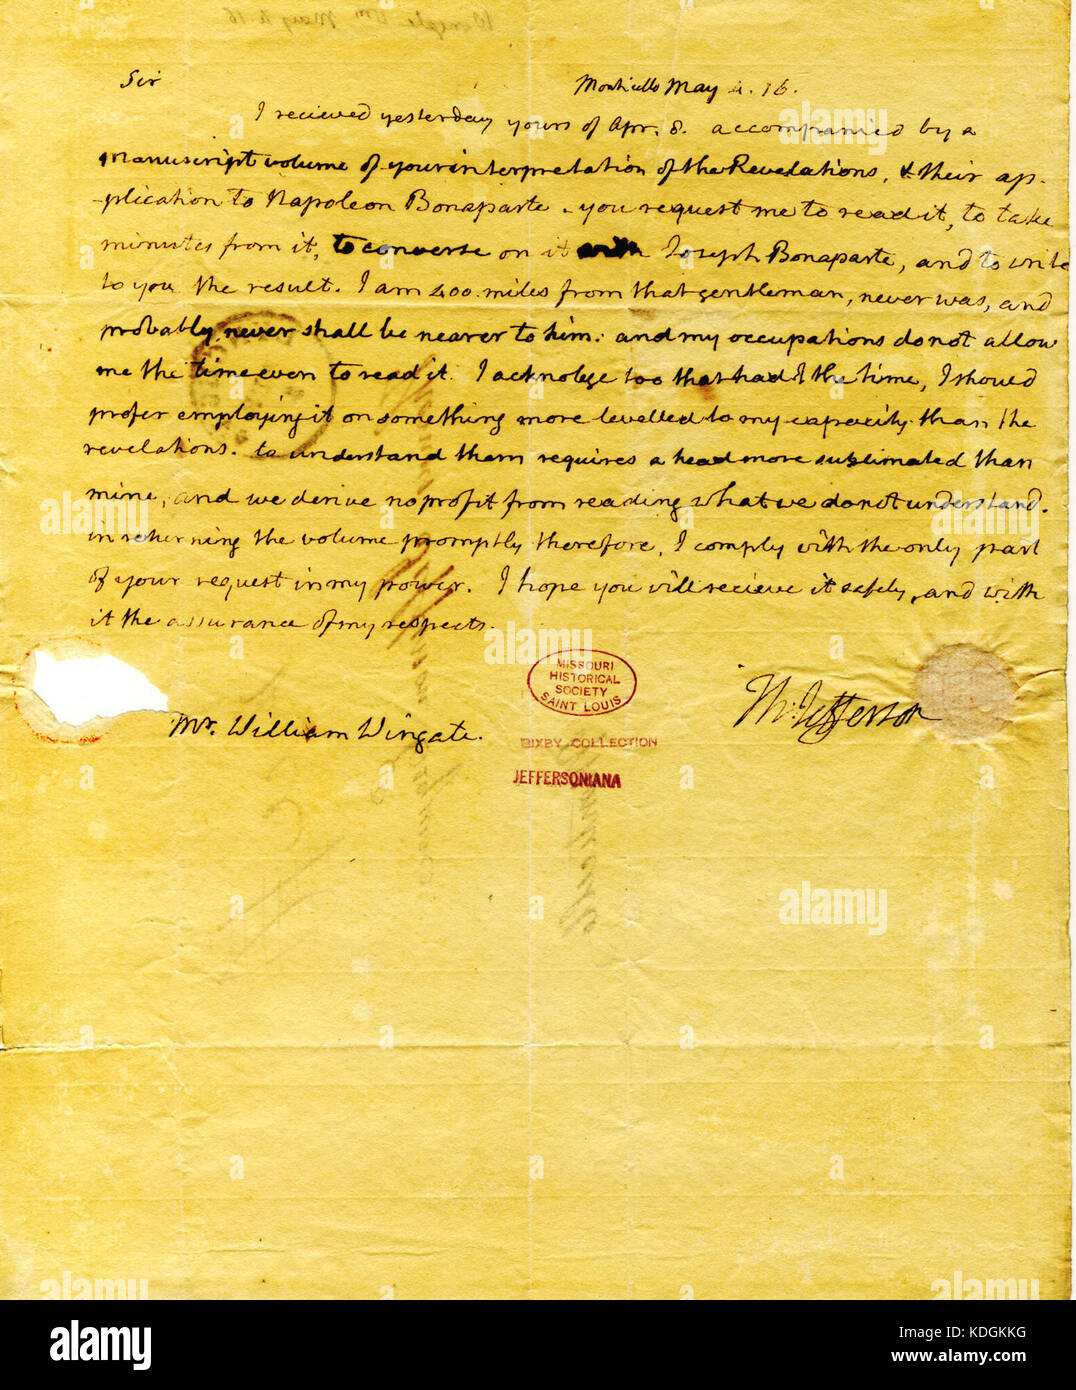 Sir
Monticello May 4. 16.
I recieved yesterday yours of Apr. 8. accompanied by a
manuscript volume of your interpretation of the Revelations, & their ap-
-plication to Napoleon Bonaparte. you request me to read it, to take
minutes from it, to converse on it with Joseph Bonaparte, and to write
to you the result. I am 400. miles from that gentleman, never was, and
probably never shall be nearer to him: and my occupations do not allow
me the time even to read it. I acknolege too that had I the time, I should
prefer employing it on something more levelled to my capacity than the
revelations. to understand them requires a head more sublimated than
mine, and we derive no profit from reading what we do not understand.
in returning the volume promptly therefore, I comply with the only part
of your request in my power. I hope you will recieve it safely, and with
it the assurance of my respects.
Th: Jefferson
Mr. William Wingate.
MISSOURI
HISTORICAL
SOCIETY
SAINT LOUIS
BIXBY COLLECTION
JEFFERSONIANA
alamy
alamy
alamy
alamy
alamy
alamy
alamy
alamy
alamy
a
a
a
a
alamy
Image ID: KDGKKG
www.alamy.com